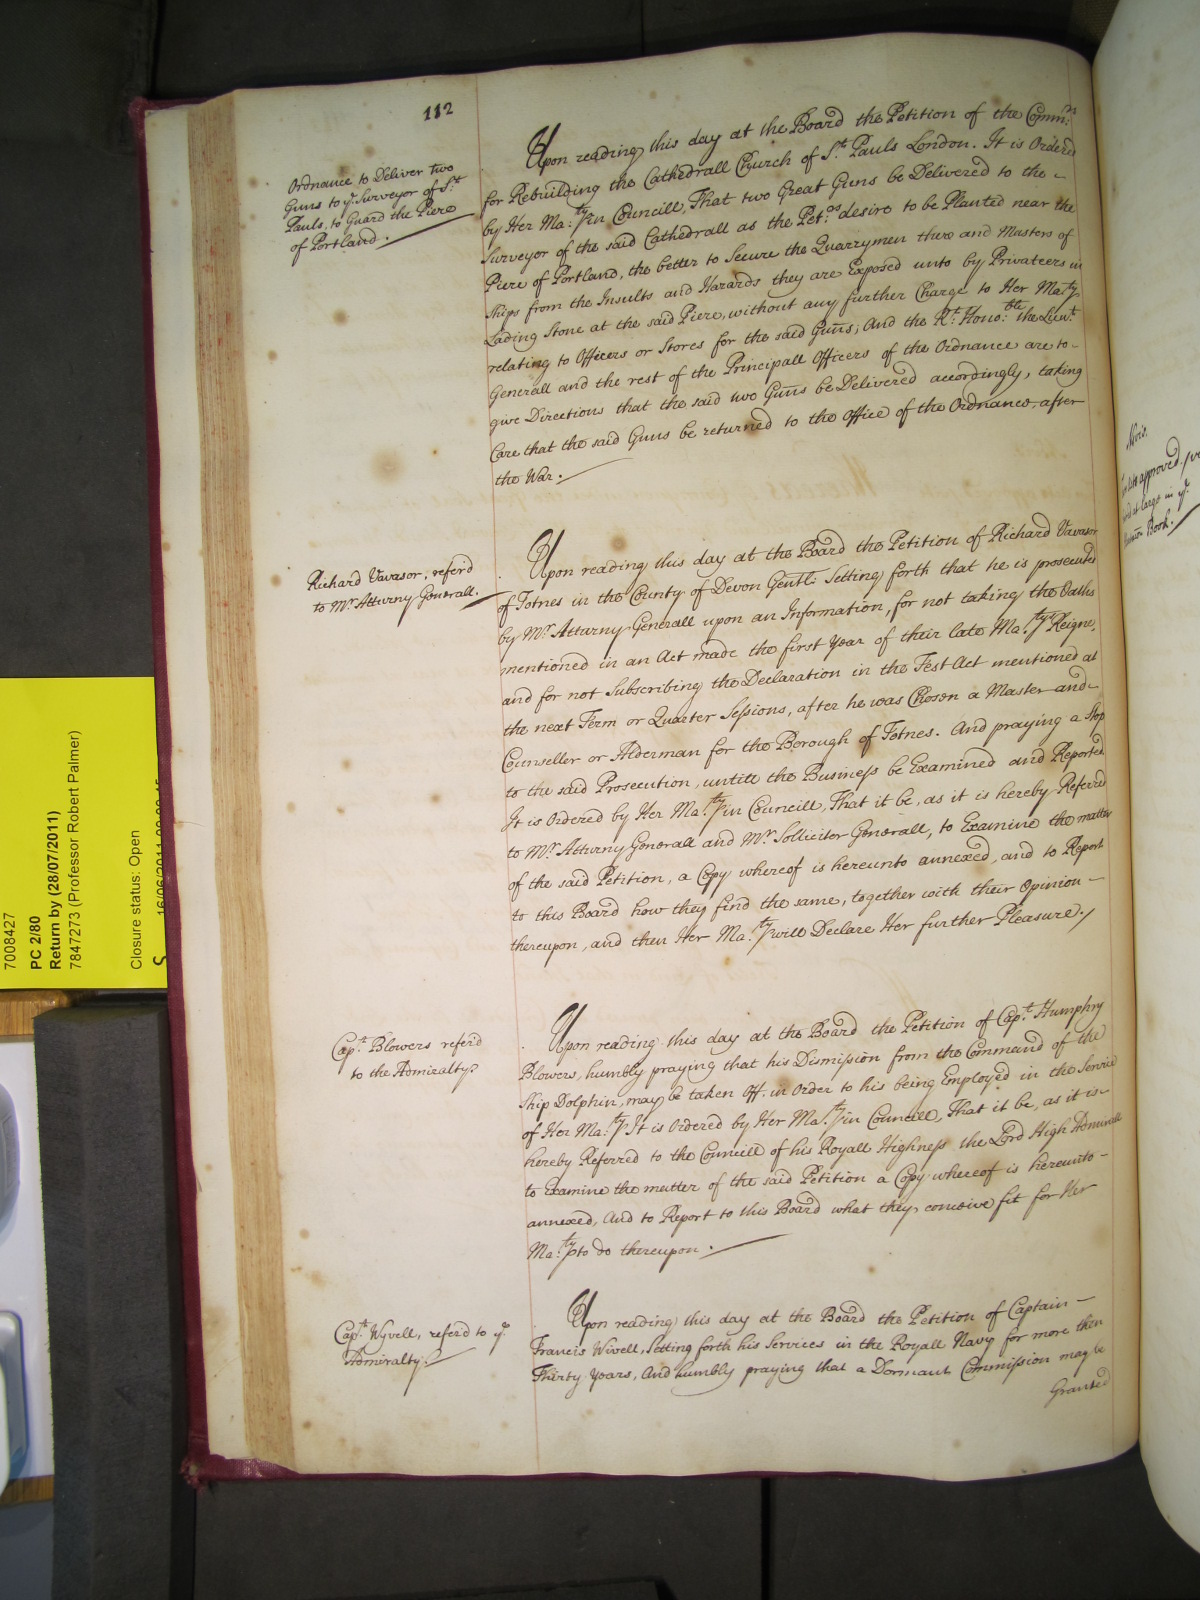 112
Ordnance to Deliver two
Guns to ye. Surveyor of St.
Pauls, to Guard the Piere
of Portland.
Upon reading this day at the Board the Petition of the Comm:rs
for Rebuilding the Cathedrall Church of St. Pauls London. It is Ordered
by Her Ma:ty in Councill, That two Great Guns be Delivered to the
Surveyor of the said Cathedrall as the Pet:rs desire to be Planted near the
Piere of Portland, the better to Secure the Quarrymen there and Masters of
Ships from the Insults and Hazards they are Exposed unto by Privateers in
Lading Stone at the said Piere, without any further Charge to Her Ma:ty
relating to Officers or Stores for the said Guns; And the Rt. Hono:ble the Lieut.
Generall and the rest of the Principall Officers of the Ordnance are to
give Directions that the said two Guns be Delivered accordingly, taking
Care that the said Guns be returned to the Office of the Ordnance, after
the War.
Richard Vavasor, referd
to Mr. Atturny Generall.
Upon reading this day at the Board the Petition of Richard Vavasor
of Totnes in the County of Devon Gentl: Setting forth that he is prosecuted
by Mr. Atturny Generall upon an Information, for not taking the Oaths
mentioned in an Act made the first Year of their late Ma:tys Reigne,
and for not Subscribing the Declaration in the Test Act mentioned at
the next Term or Quarter Sessions, after he was Chosen a Master and
Counseller or Alderman for the Borough of Totnes. And praying a Stop
to the said Prosecution, untill the Business be Examined and Reported
It is Ordered by Her Ma:ty in Councill, That it be, as it is hereby Referred
to Mr. Atturny Generall and Mr. Sollicitor Generall, to Examine the matter
of the said Petition, a Copy whereof is hereunto annexed, and to Report
to this Board how they find the same, together with their Opinion
thereupon, and then Her Ma:ty will Declare Her further Pleasure.
Capt. Blowers referd
to the Admiralty
Upon reading this day at the Board the Petition of Capt. Humphry
Blowers, humbly praying that his Dismission from the Command of the
Ship Dolphin, may be taken Off. in Order to his being Employed in the Service
of Her Ma:ty It is Ordered by Her Ma:ty in Councill, That it be, as it is
hereby Referred to the Councill of his Royall Highness the Lord High Admirall
to Examine the matter of the said Petition a Copy whereof is hereunto
annexed, And to Report to this Board what they conceive fit for Her
Ma:ty to do thereupon.
Capt. Wyvell, referd to ye.
Admiralty
Upon reading this day at the Board the Petition of Captain
Francis Wivell, Setting forth his Services in the Royall Navy for more then
Thirty Years, And humbly praying that a Dormant Commission may be
Granted
approved
at large in ye.
Book.
7008427
PC 2/80
Return by (28/07/2011)
7847273 (Professor Robert Palmer)
Closure status: Open
S